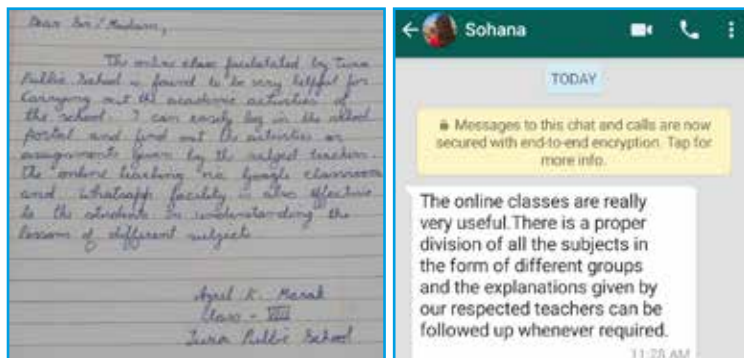 Dear Sir/Madam,
The online class facilitated by Tura
Public School is found to be very helpful for
Carrying out the academic activities of
the school. I can easily log in the school
portal and find out the activities or
assignments given by the subject teachers.
The online teaching via google classroom
and whatsapp facility is also effective
to the students in understanding the
lessons of different subjects
K. Marak
Class - VIII
Tura Public School
Sohana
TODAY
Messages to this chat and calls are now
secured with end-to-end encryption. Tap for
more info.
The online classes are really
very useful.There is a proper
division of all the subjects in
the form of different groups
and the explanations given by
our respected teachers can be
followed up whenever required.
11:28 AM